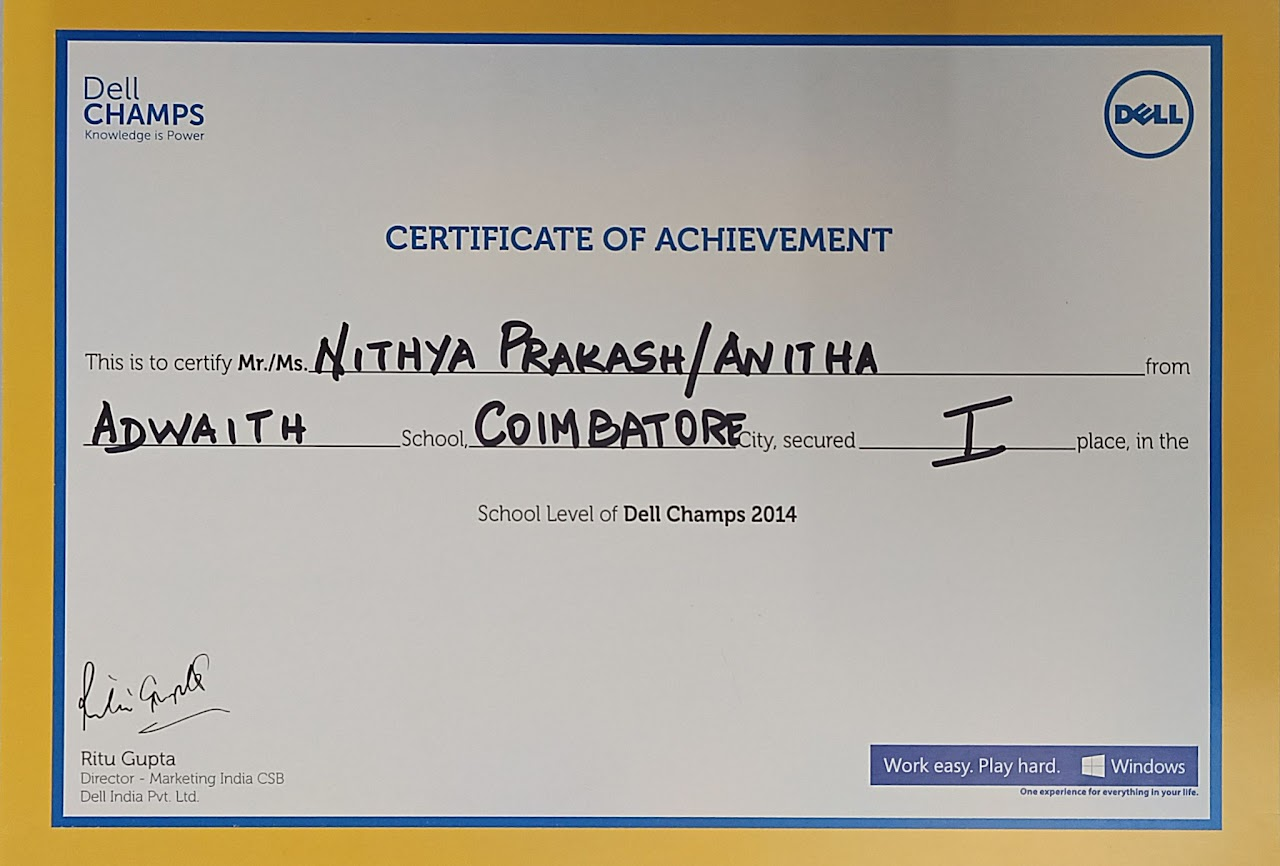 Dell
CHAMPS
Knowledge is Power
DELL
CERTIFICATE OF ACHIEVEMENT
This is to certify Mr./Ms. NITHYA PRAKASH/ANITHA from
ADWAITH School, COIMBATORE City, secured I place, in the
School Level of Dell Champs 2014
Ritu Gupta
Ritu Gupta
Director - Marketing India CSB
Dell India Pvt. Ltd.
Work easy. Play hard. Windows
One experience for everything in your life.